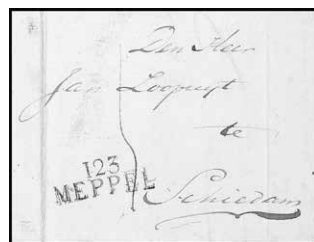 Den Heer
Jan Loopuyt
te
123
MEPPEL
Schiedam